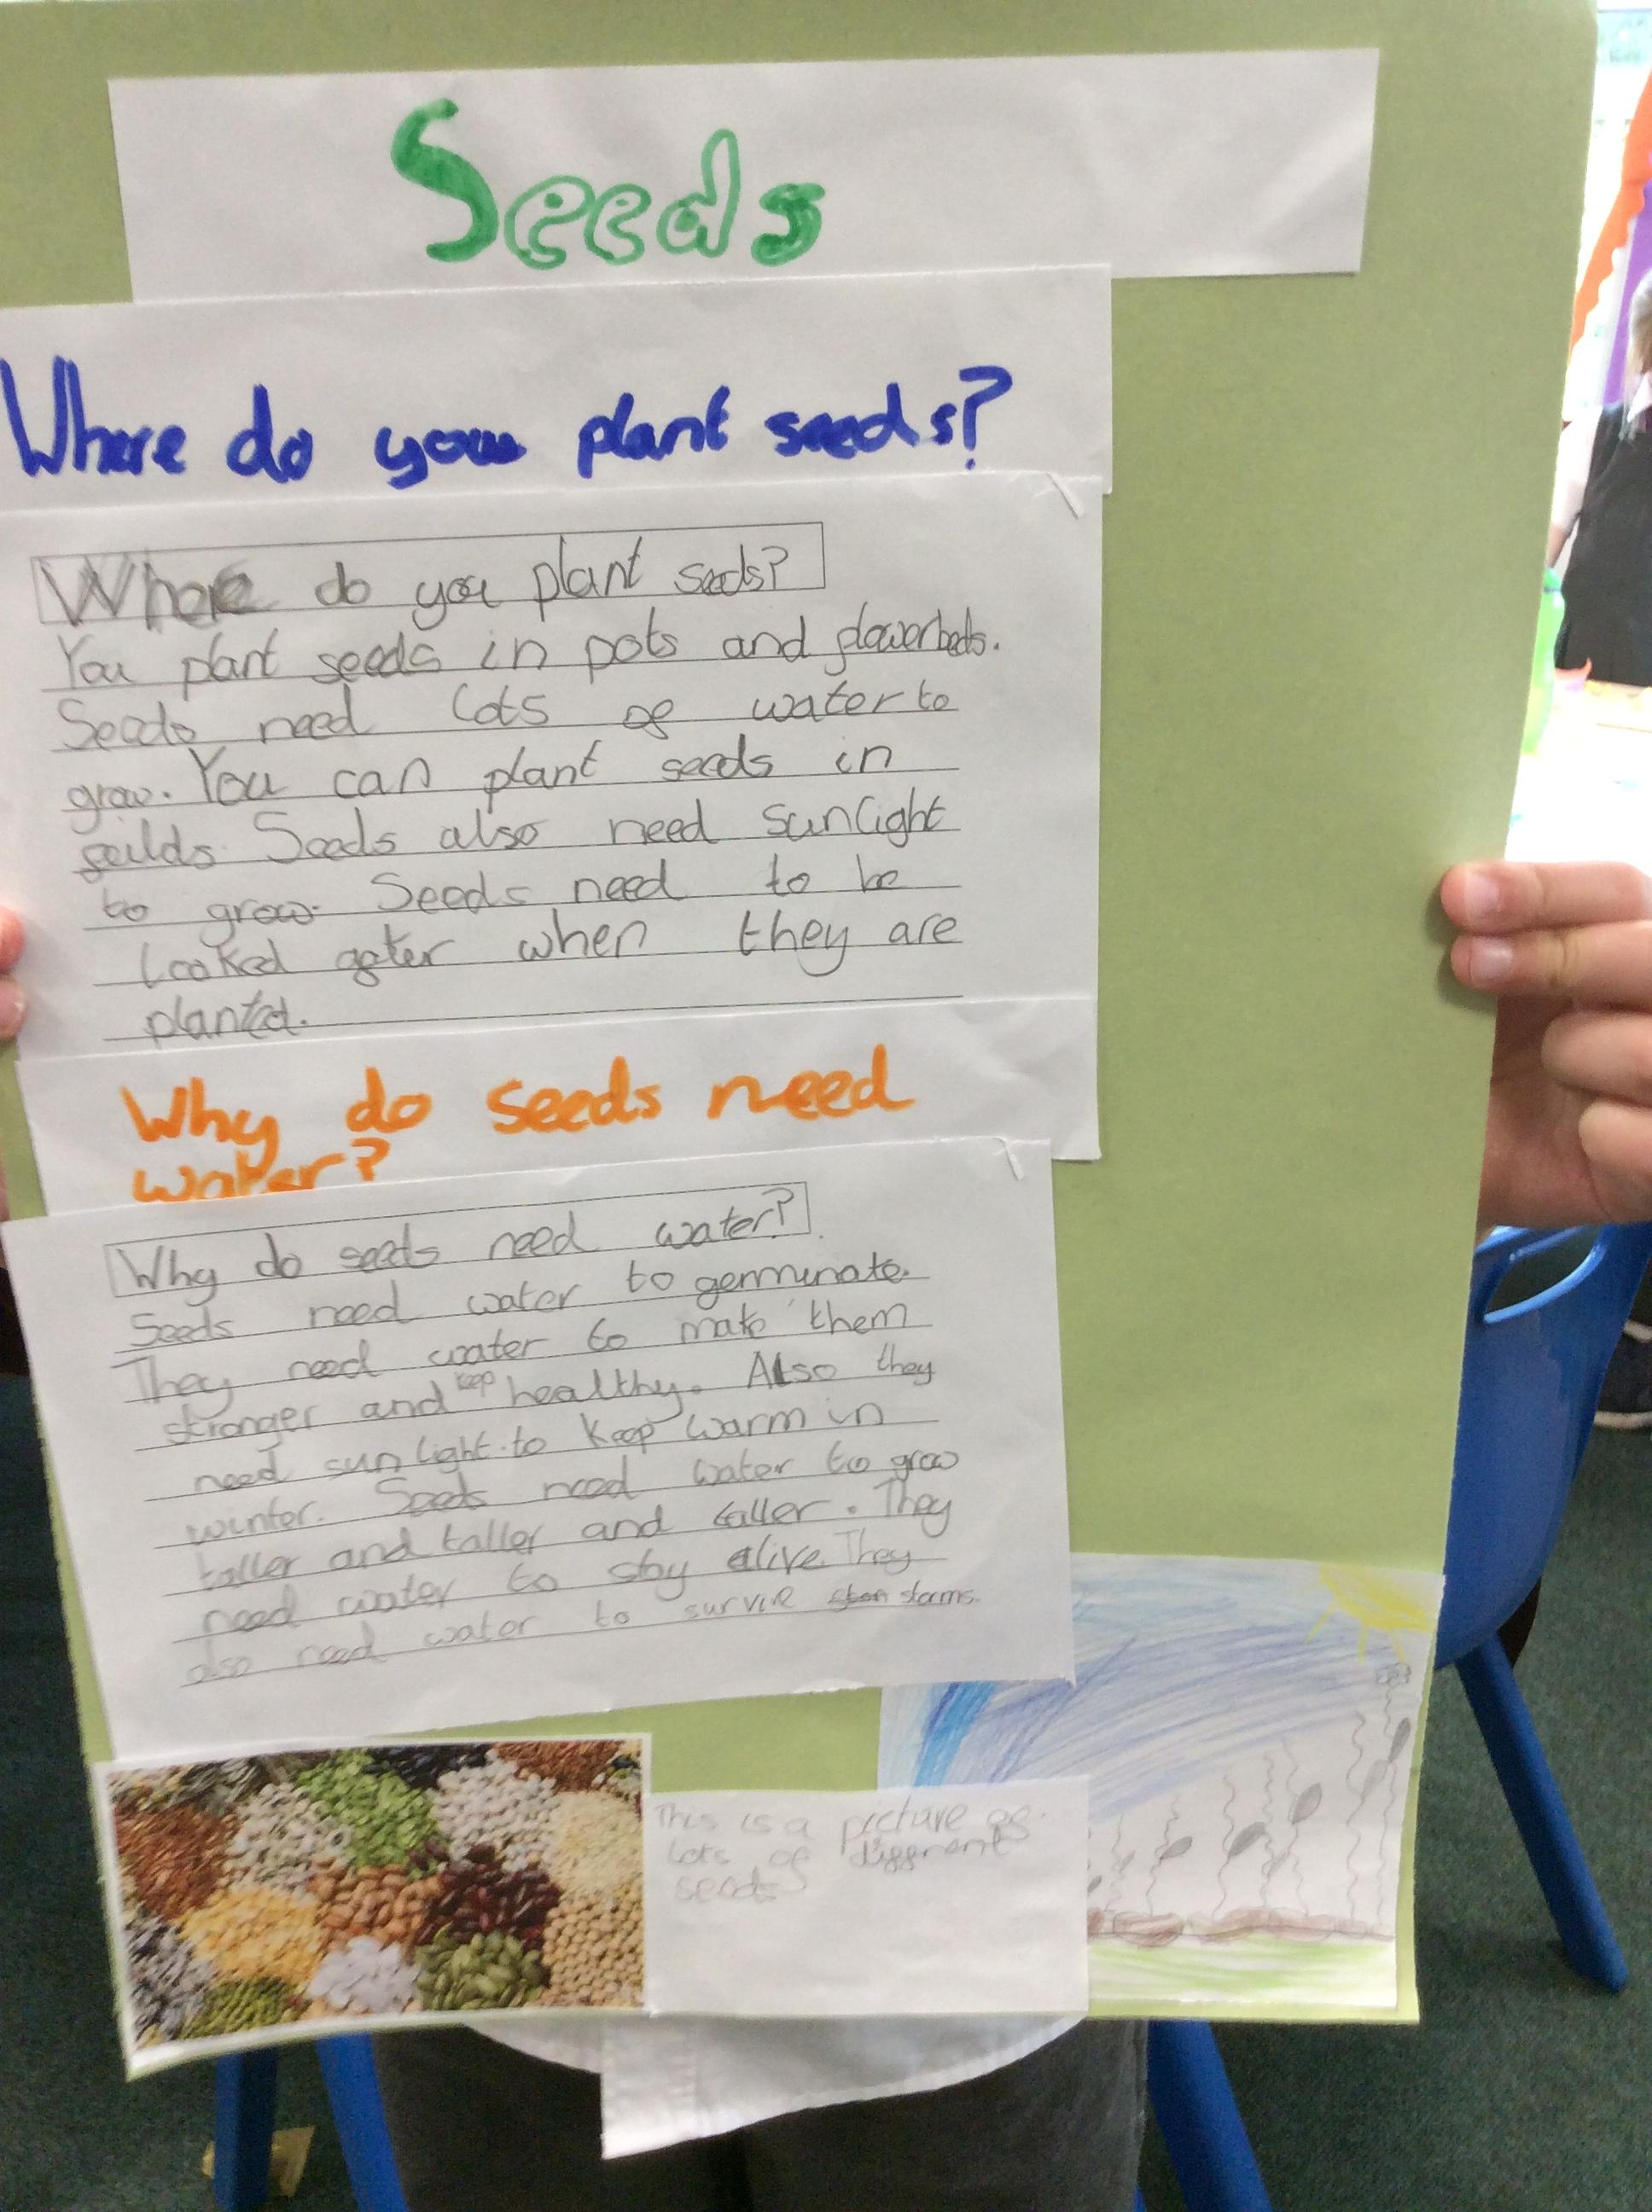 Seeds
Where do you plant seeds?
Where do you plant seeds?
You plant seeds in pots and flowerbeds.
Seeds need lots of water to
grow. You can plant seeds in
feilds. Seeds also need sunlight
to grow. Seeds need to be
looked after when they are
planted.
Why do seeds need
water?
Why do seeds need water?
Seeds need water to germinate.
They need water to make them
stronger and keep healthy. Also they
need sun light to keep warm in
winter. Seeds need water to grow
taller and taller and taller. They
need water to stay alive. They
also need water to survive storms.
This is a picture of
lots of diffrent
seeds